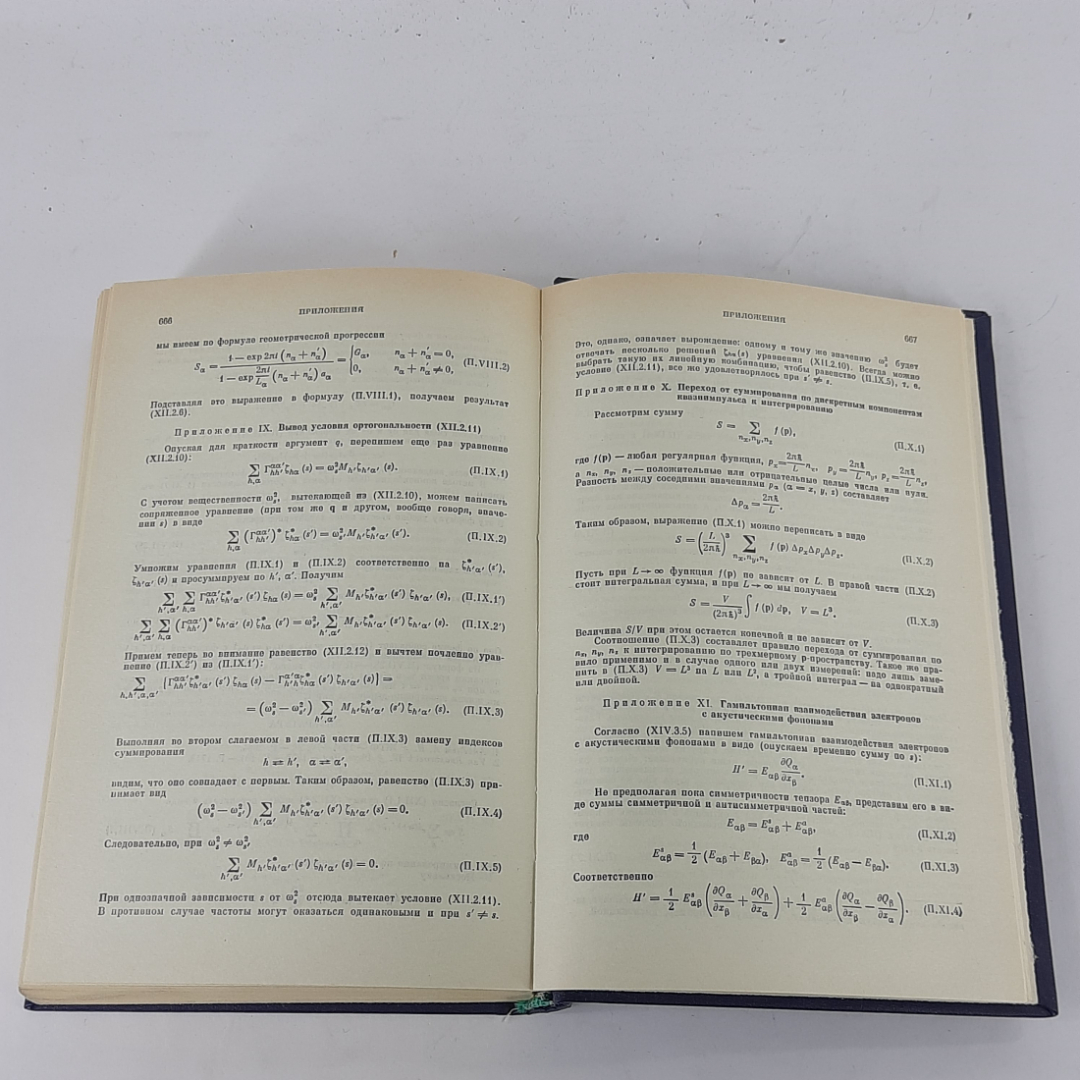 666
ПРИЛОЖЕНИЯ
мы имеем по формуле геометрической прогрессии
S_α = (1 − exp 2πi (n_α + n′_α)) / (1 − exp (2πi/L_α) (n_α + n′_α) a_α) = {G_α, n_α + n′_α = 0, (П.VIII.2)
0, n_α + n′_α ≠ 0,
Подставляя это выражение в формулу (П.VIII.1), получаем результат
(XII.2.6).
Приложение IX. Вывод условия ортогональности (XII.2.11)
Опуская для краткости аргумент q, перепишем еще раз уравнение
(XII.2.10):
∑_{h,α} Γ^{αα′}_{hh′} ζ_{hα} (s) = ω²_s M_{h′} ζ_{h′α′} (s). (П.IX.1)
С учетом вещественности ω²_s, вытекающей из (XII.2.10), можем написать
сопряженное уравнение (при том же q и другом, вообще говоря, значе-
нии s) в виде
∑_{h,α} (Γ^{αα′}_{hh′})* ζ*_{hα} (s′) = ω²_{s′} M_{h′} ζ*_{h′α′} (s′). (П.IX.2)
Умножим уравнения (П.IX.1) и (П.IX.2) соответственно на ζ*_{h′α′} (s′),
ζ_{h′α′} (s) и просуммируем по h′, α′. Получим
∑_{h′,α′} ∑_{h,α} Γ^{αα′}_{hh′} ζ*_{h′α′} (s′) ζ_{hα} (s) = ω²_s ∑_{h′,α′} M_{h′} ζ*_{h′α′} (s′) ζ_{h′α′} (s), (П.IX.1′)
∑_{h′,α′} ∑_{h,α} (Γ^{αα′}_{hh′})* ζ_{h′α′} (s) ζ*_{hα} (s′) = ω²_{s′} ∑_{h′,α′} M_{h′} ζ*_{h′α′} (s′) ζ_{h′α′} (s). (П.IX.2′)
Примем теперь во внимание равенство (XII.2.12) и вычтем почленно урав-
нение (П.IX.2′) из (П.IX.1′):
∑_{h,h′,α,α′} {Γ^{αα′}_{hh′} ζ*_{h′α′} (s′) ζ_{hα} (s) − Γ^{α′α}_{h′h} ζ*_{hα} (s′) ζ_{h′α′} (s)} =
= (ω²_s − ω²_{s′}) ∑_{h′,α′} M_{h′} ζ*_{h′α′} (s′) ζ_{h′α′} (s). (П.IX.3)
Выполняя во втором слагаемом в левой части (П.IX.3) замену индексов
суммирования
h ⇌ h′, α ⇌ α′,
видим, что оно совпадает с первым. Таким образом, равенство (П.IX.3) при-
нимает вид
(ω²_s − ω²_{s′}) ∑_{h′,α′} M_{h′} ζ*_{h′α′} (s′) ζ_{h′α′} (s) = 0. (П.IX.4)
Следовательно, при ω²_s ≠ ω²_{s′}
∑_{h′,α′} M_{h′} ζ*_{h′α′} (s′) ζ_{h′α′} (s) = 0. (П.IX.5)
При однозначной зависимости s от ω²_s отсюда вытекает условие (XII.2.11).
В противном случае частоты могут оказаться одинаковыми и при s′ ≠ s.
ПРИЛОЖЕНИЯ
667
Это, однако, означает вырождение: одному и тому же значению ω²_s будет
отвечать несколько решений ζ_{hα}(s) уравнения (XII.2.10). Всегда можно
выбрать такую их линейную комбинацию, чтобы равенство (П.IX.5), т. е.
условие (XII.2.11), все же удовлетворялось при s′ ≠ s.
Приложение X. Переход от суммирования по дискретным компонентам
квазиимпульса к интегрированию
Рассмотрим сумму
S = ∑_{n_x,n_y,n_z} f (p), (П.X.1)
где f(p) — любая регулярная функция, p_x = (2πħ/L) n_x, p_y = (2πħ/L) n_y, p_z = (2πħ/L) n_z,
а n_x, n_y, n_z — положительные или отрицательные целые числа или нули.
Разность между соседними значениями p_α (α = x, y, z) составляет
Δp_α = 2πħ/L.
Таким образом, выражение (П.X.1) можно переписать в виде
S = (L/2πħ)³ ∑_{n_x,n_y,n_z} f (p) Δp_x Δp_y Δp_z. (П.X.2)
Пусть при L → ∞ функция f(p) не зависит от L. В правой части (П.X.2)
стоит интегральная сумма, и при L → ∞ мы получаем
S = V/(2πħ)³ ∫ f (p) dp, V = L³. (П.X.3)
Величина S/V при этом остается конечной и не зависит от V.
Соотношение (П.X.3) составляет правило перехода от суммирования по
n_x, n_y, n_z к интегрированию по трехмерному p-пространству. Такое же пра-
вило применимо и в случае одного или двух измерений: надо лишь заме-
нить в (П.X.3) V = L³ на L или L², а тройной интеграл — на однократный
или двойной.
Приложение XI. Гамильтониан взаимодействия электронов
с акустическими фононами
Согласно (XIV.3.5) напишем гамильтониан взаимодействия электронов
с акустическими фононами в виде (опускаем временно сумму по s):
H′ = E_{αβ} ∂Q_α/∂x_β. (П.XI.1)
Не предполагая пока симметричности тензора E_{αβ}, представим его в ви-
де суммы симметричной и антисимметричной частей:
E_{αβ} = E^s_{αβ} + E^a_{αβ}, (П.XI.2)
где
E^s_{αβ} = 1/2 (E_{αβ} + E_{βα}), E^a_{αβ} = 1/2 (E_{αβ} − E_{βα}). (П.XI.3)
Соответственно
H′ = 1/2 E^s_{αβ} (∂Q_α/∂x_β + ∂Q_β/∂x_α) + 1/2 E^a_{αβ} (∂Q_α/∂x_β − ∂Q_β/∂x_α). (П.XI.4)